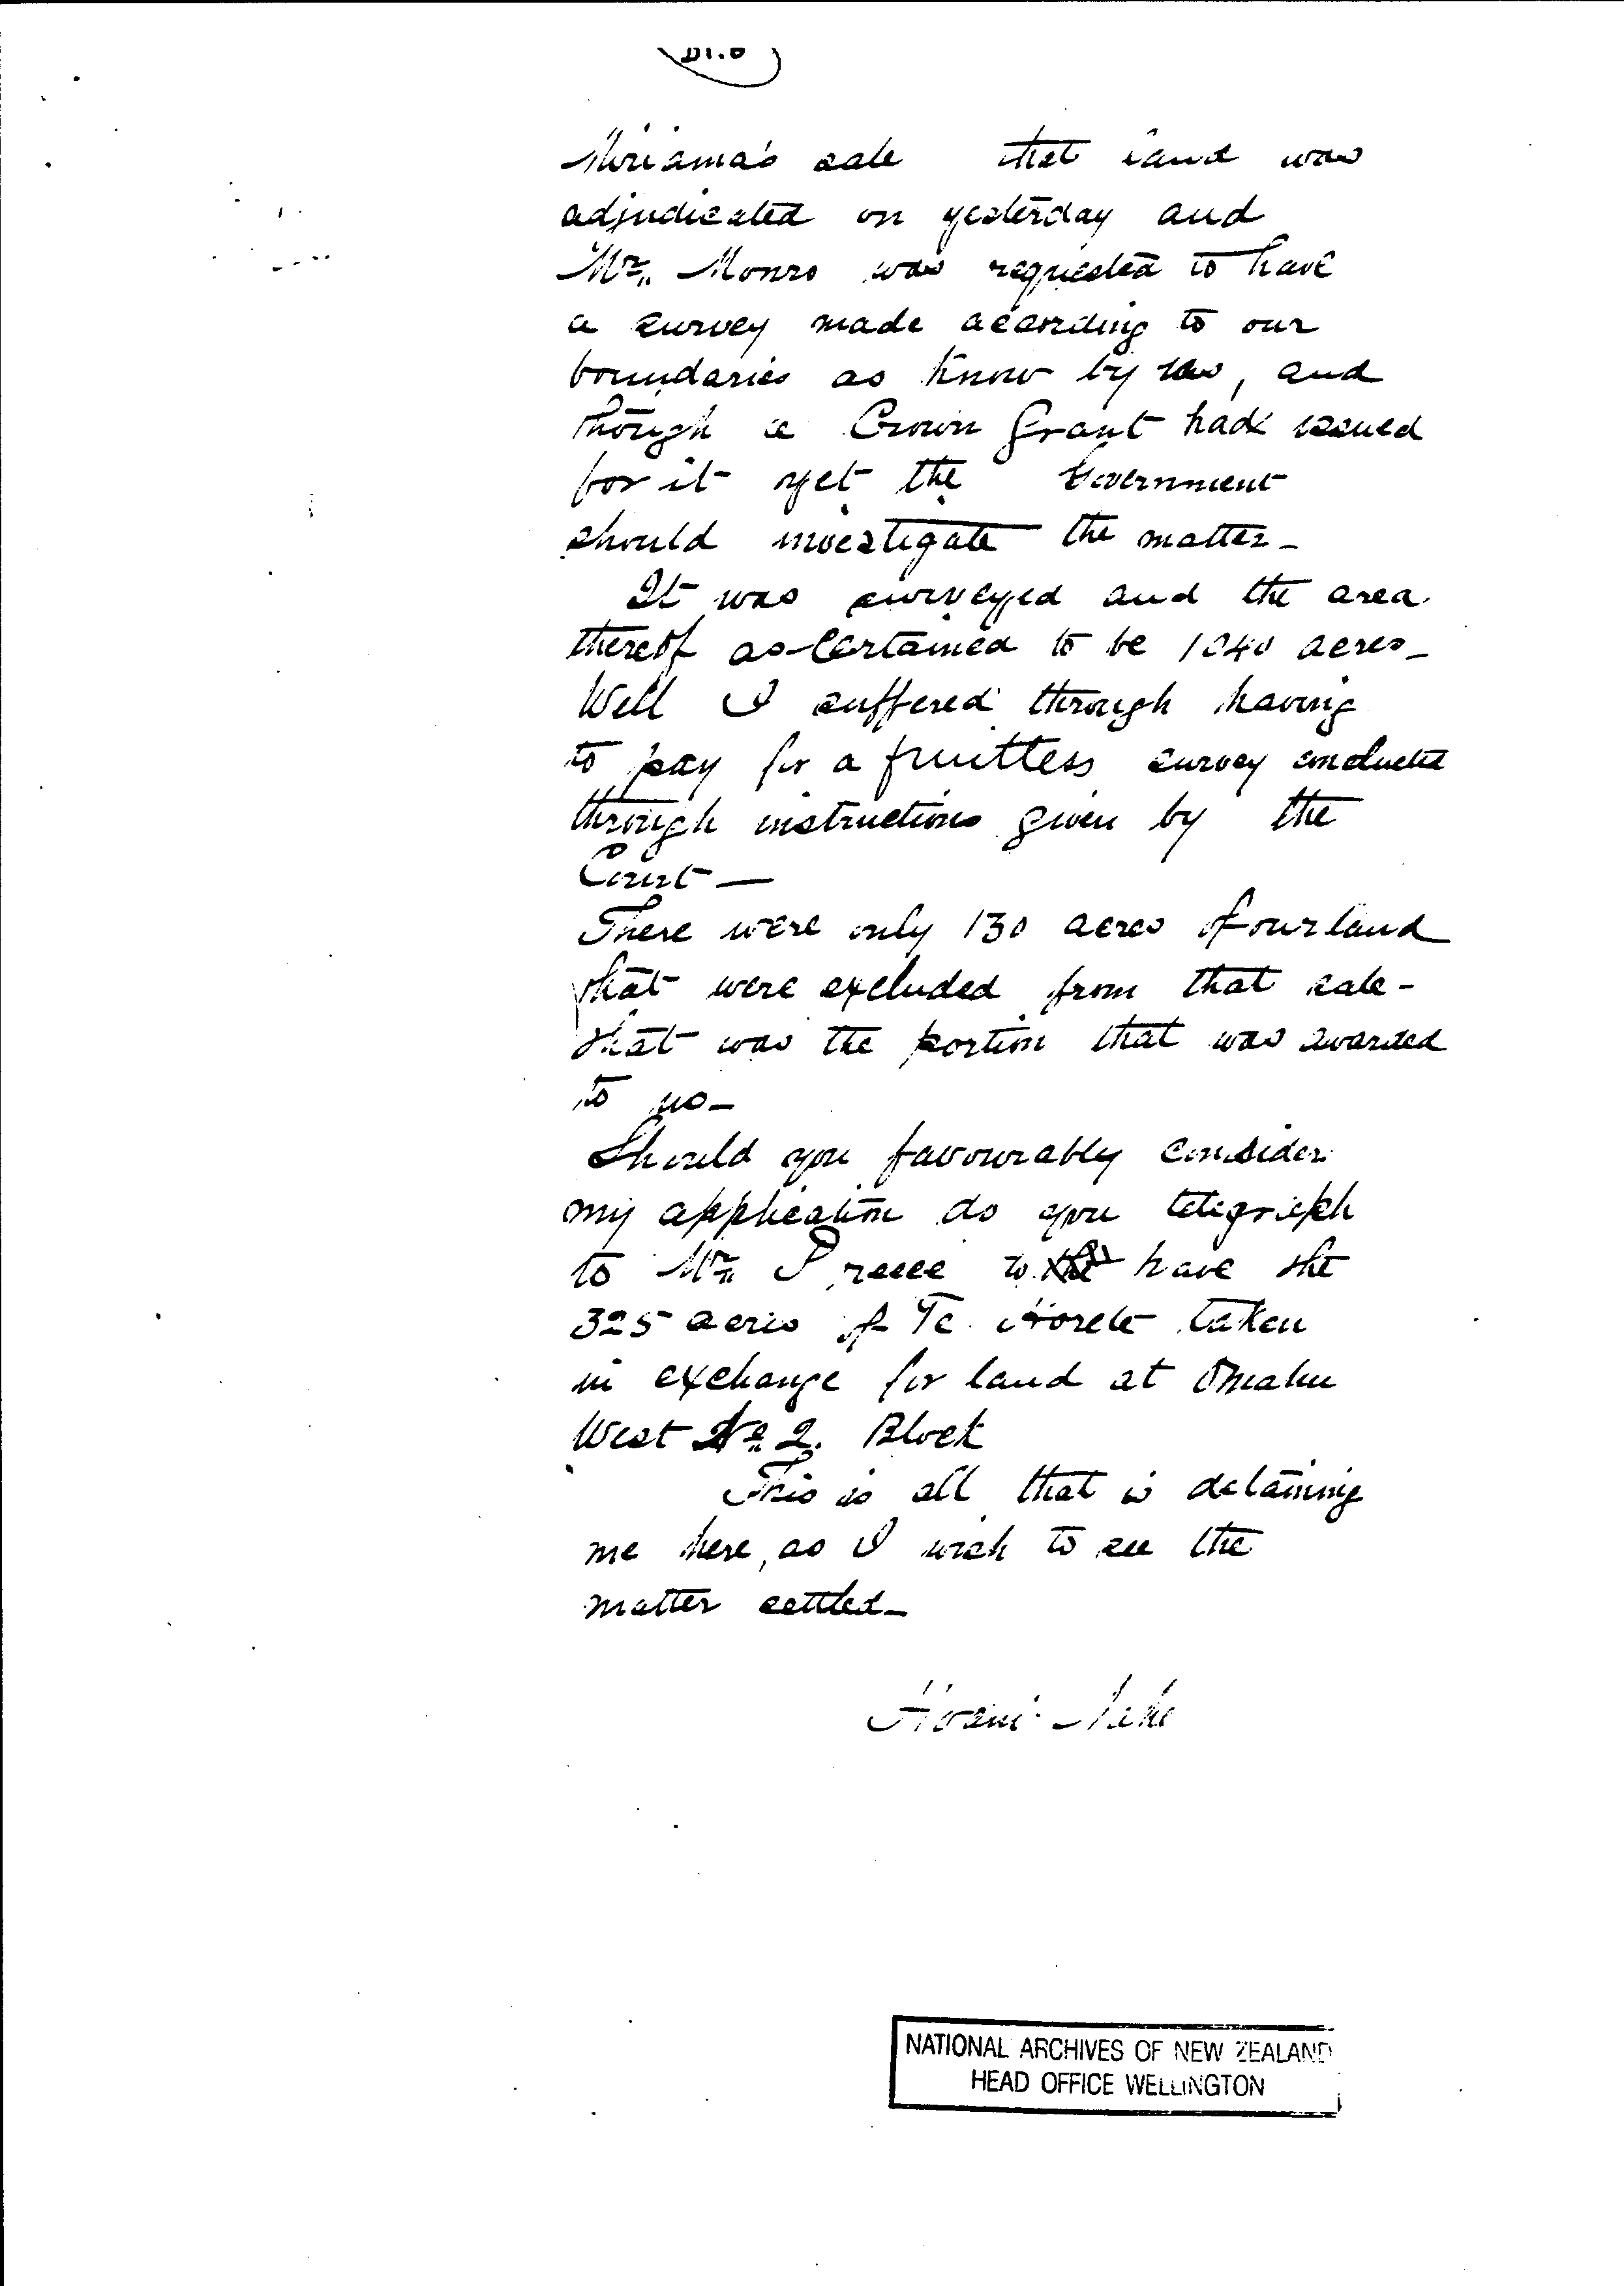 D1.8
Miriama's sale that land was
adjudicated on yesterday and
Mr. Monro was requested to have
a survey made according to our
boundaries as know by us, and
though a Crown Grant had issued
for it yet the Government
should investigate the matter_
It was surveyed and the area
thereof as-certained to be 1040 acres_
Well I suffered through having
to pay for a fruitless survey conducted
through instructions given by the
Court —
There were only 130 acres of our land
that were excluded from that sale -
that was the portion that was awarded
to us_
Should you favourably consider
my application do you telegraph
to Mr. Preece to have the
325 acres of Te Horete taken
in exchange for land at Omahu
West No. 2. Block
This is all that is detaining
me here, as I wish to see the
matter settled_
Hoani Nahe
NATIONAL ARCHIVES OF NEW ZEALAND
HEAD OFFICE WELLINGTON